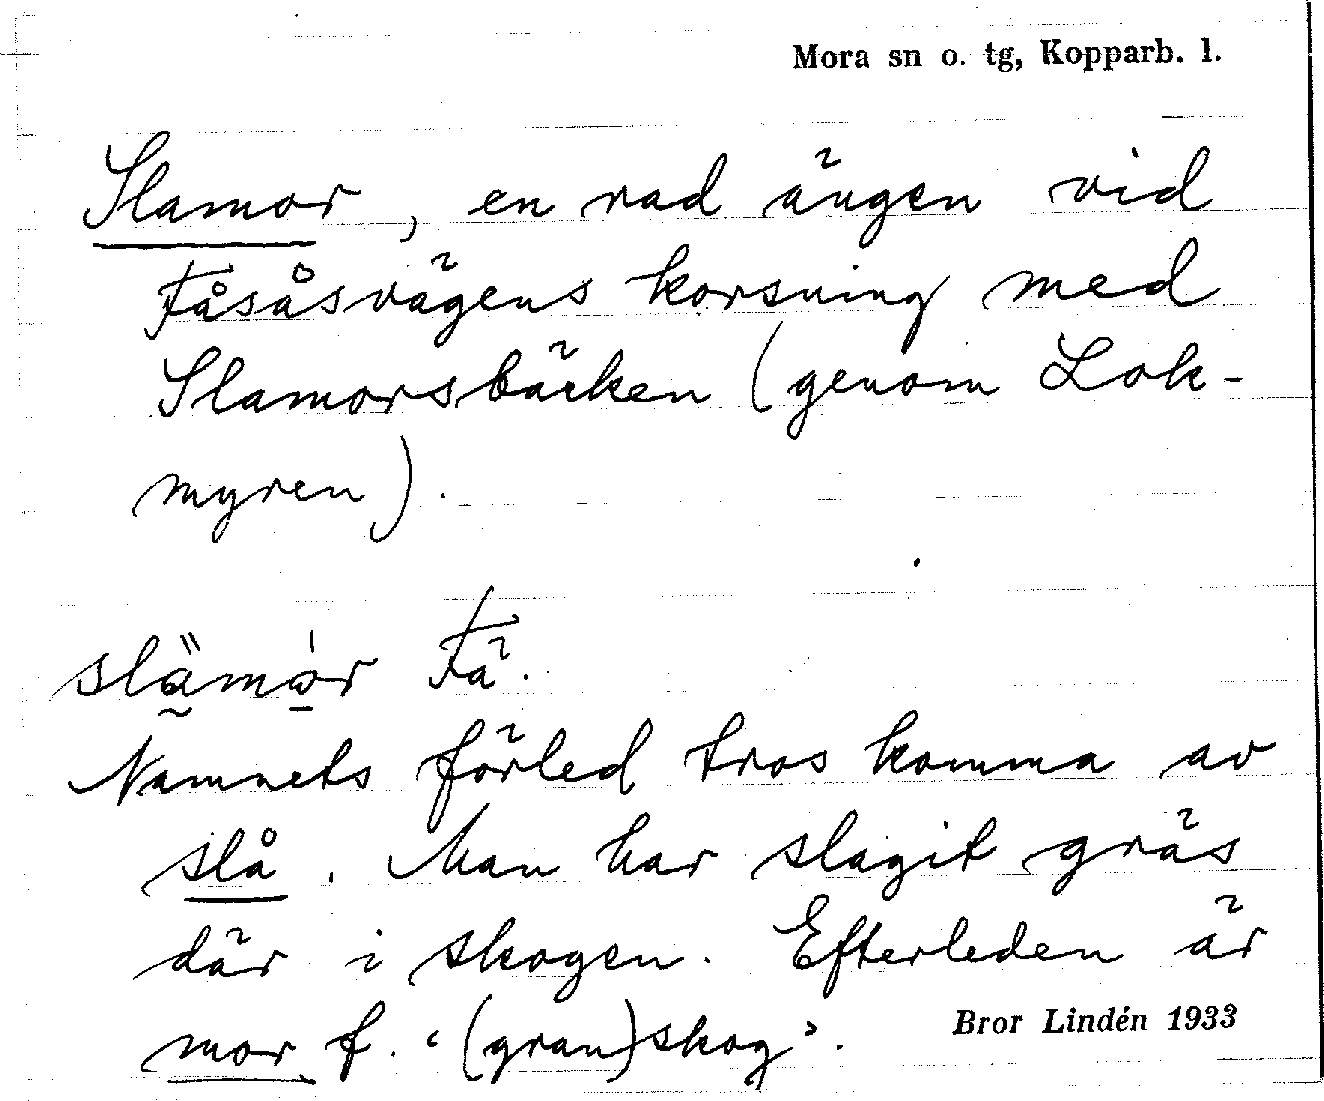 Mora sn o. tg, Kopparb. l.
Slamor, en rad ängen vid
Fåsåsvägens korsning med
Slamorsbäcken (genom Lok-
myren).
Få.
Namnets förled tros komma av
slå. Man har slagit gräs
där i skogen. Efterleden är
mor f. ‘(gran)skog’.
Bror Lindén 1933